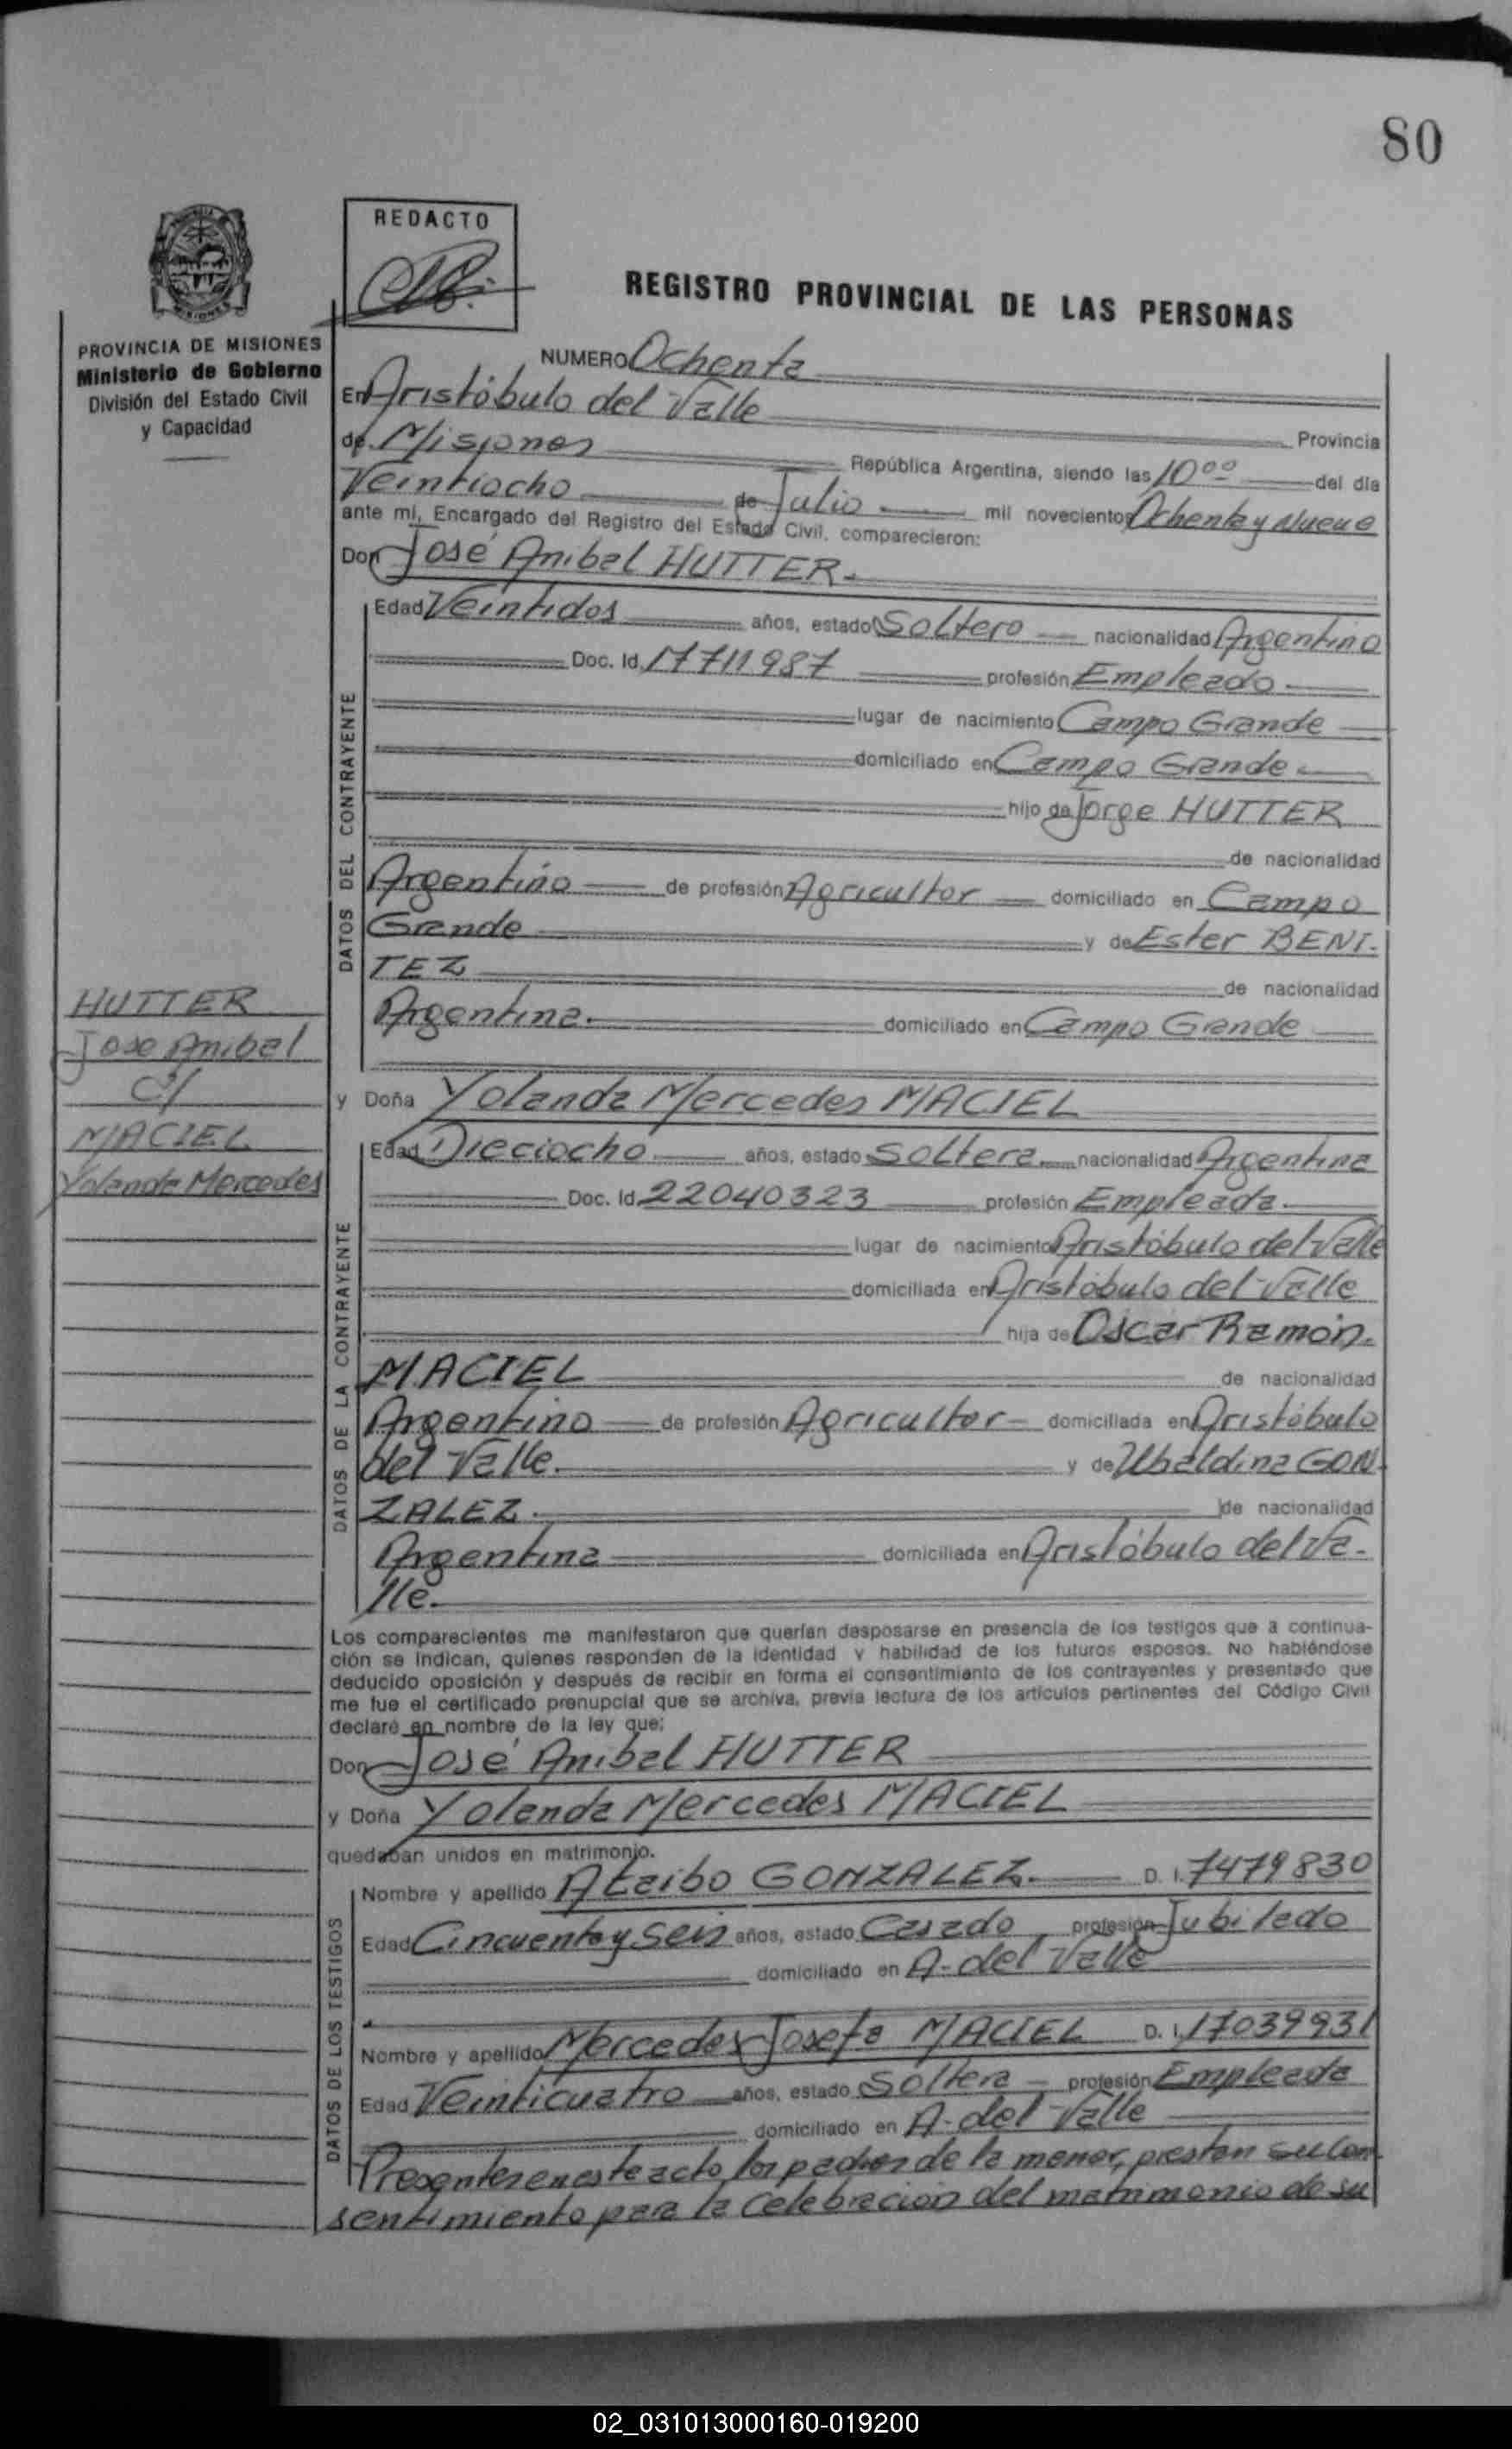 80
REDACTO
REGISTRO PROVINCIAL DE LAS PERSONAS
MISIONES
PROVINCIA DE MISIONES
Ministerio de Gobierno
División del Estado Civil
y Capacidad
NUMERO Ochenta
En Aristóbulo del Valle
Provincia
de Misiones República Argentina, siendo las 10°° del día
Veintiocho de Julio mil novecientos Ochenta y Nueve
ante mí, Encargado del Registro del Estado Civil, comparecieron:
Don José Anibal HUTTER.
Edad Veintidos años, estado Soltero nacionalidad Argentino
Doc. Id. 17711987 profesión Empleado
lugar de nacimiento Campo Grande
domiciliado en Campo Grande
hijo de Jorge HUTTER
de nacionalidad
Argentino de profesión Agricultor domiciliado en Campo
Grande y de Ester BENI-
TEZ de nacionalidad
Argentina. domiciliado en Campo Grande
DATOS DEL CONTRAYENTE
HUTTER
Jose Anibal
c/
MACIEL
Yolanda Mercedes
y Doña Yolanda Mercedes MACIEL
Edad Dieciocho años, estado Soltera nacionalidad Argentina
Doc. Id. 22040323 profesión Empleada.
lugar de nacimiento Aristóbulo del Valle
domiciliada en Aristóbulo del Valle
hija de Oscar Ramón
MACIEL de nacionalidad
Argentino de profesión Agricultor domiciliada en Aristóbulo
del Valle. y de Ubaldina GON-
ZALEZ. de nacionalidad
Argentina domiciliada en Aristóbulo del Va-
lle.
DATOS DE LA CONTRAYENTE
Los comparecientes me manifestaron que querían desposarse en presencia de los testigos que a continua-
ción se indican, quienes responden de la identidad y habilidad de los futuros esposos. No habiéndose
deducido oposición y después de recibir en forma el consentimiento de los contrayentes y presentado que
me fue el certificado prenupcial que se archiva, previa lectura de los artículos pertinentes del Código Civil
declaré en nombre de la ley que:
Don José Anibal HUTTER
y Doña Yolanda Mercedes MACIEL
quedaban unidos en matrimonio.
Nombre y apellido Ataibo GONZALEZ. D. I. 7479830
Edad Cincuenta y Seis años, estado Casado profesión Jubilado
domiciliado en A. del Valle
Nombre y apellido Mercedes Josefa MACIEL D. I. 17039931
Edad Veinticuatro años, estado Soltera profesión Empleada
domiciliado en A. del Valle
DATOS DE LOS TESTIGOS
Presentes en este acto los padres de la menor, prestan su con-
sentimiento para la celebracion del matrimonio de su
02_031013000160-019200